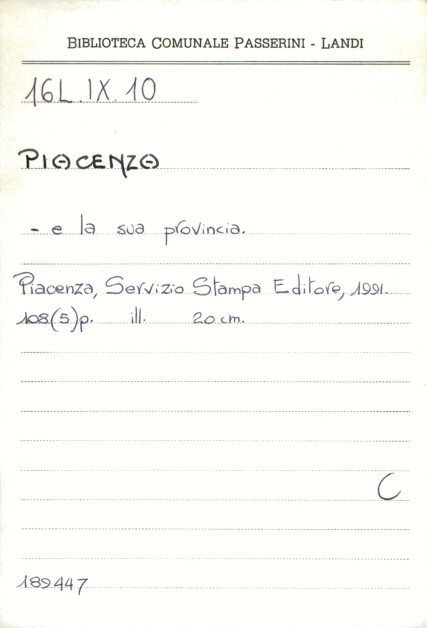 BIBLIOTECA COMUNALE PASSERINI - LANDI
16L.IX.10
PIACENZA
- e la sua provincia.
Piacenza, Servizio Stampa Editore, 1991.
108(5)p. ill. 20 cm.
C
189447